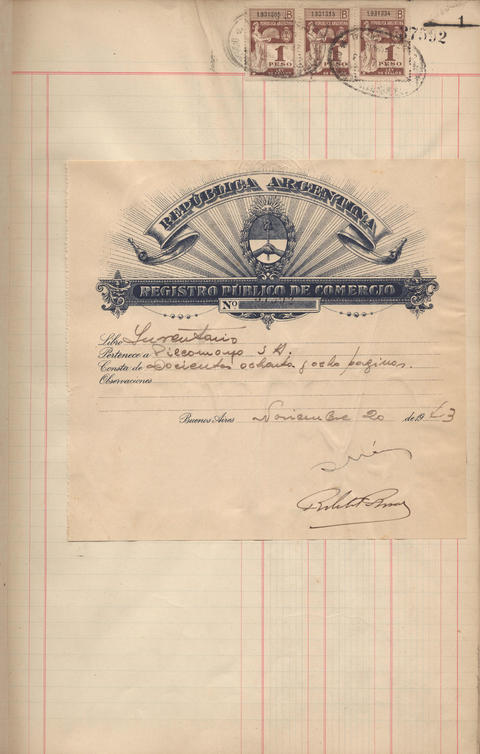 1931305 B 1931315 B 1931334 B
1
37592
1 PESO 1 PESO
REPÚBLICA ARGENTINA
REGISTRO PÚBLICO DE COMERCIO
Nº
Libro Inventario
Pertenece a Pilcomayo S A.
Consta de Docientos ochenta y ocho paginas.
Observaciones
Buenos Aires Noviembre 20 de 19 43